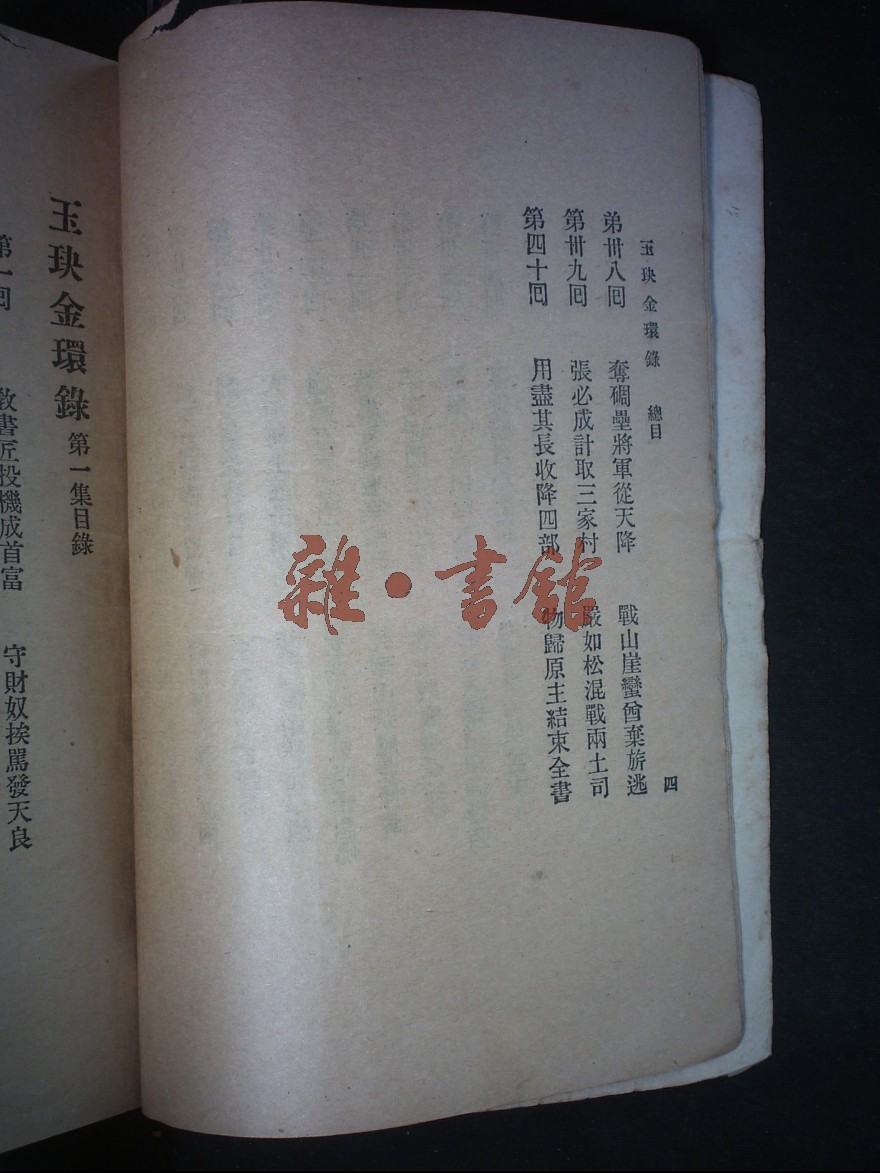 玉玦金環錄 總目 四
弟卅八囘 奪碉壘將軍從天降 戰山崖蠻酋棄旂逃
第卅九囘 張必成計取三家村 嚴如松混戰兩土司
第四十囘 用盡其長收降四部 物歸原主結束全書
玉玦金環錄 第一集目錄
第一囘 教書匠投機成首富 守財奴挨罵發天良
雜·書館